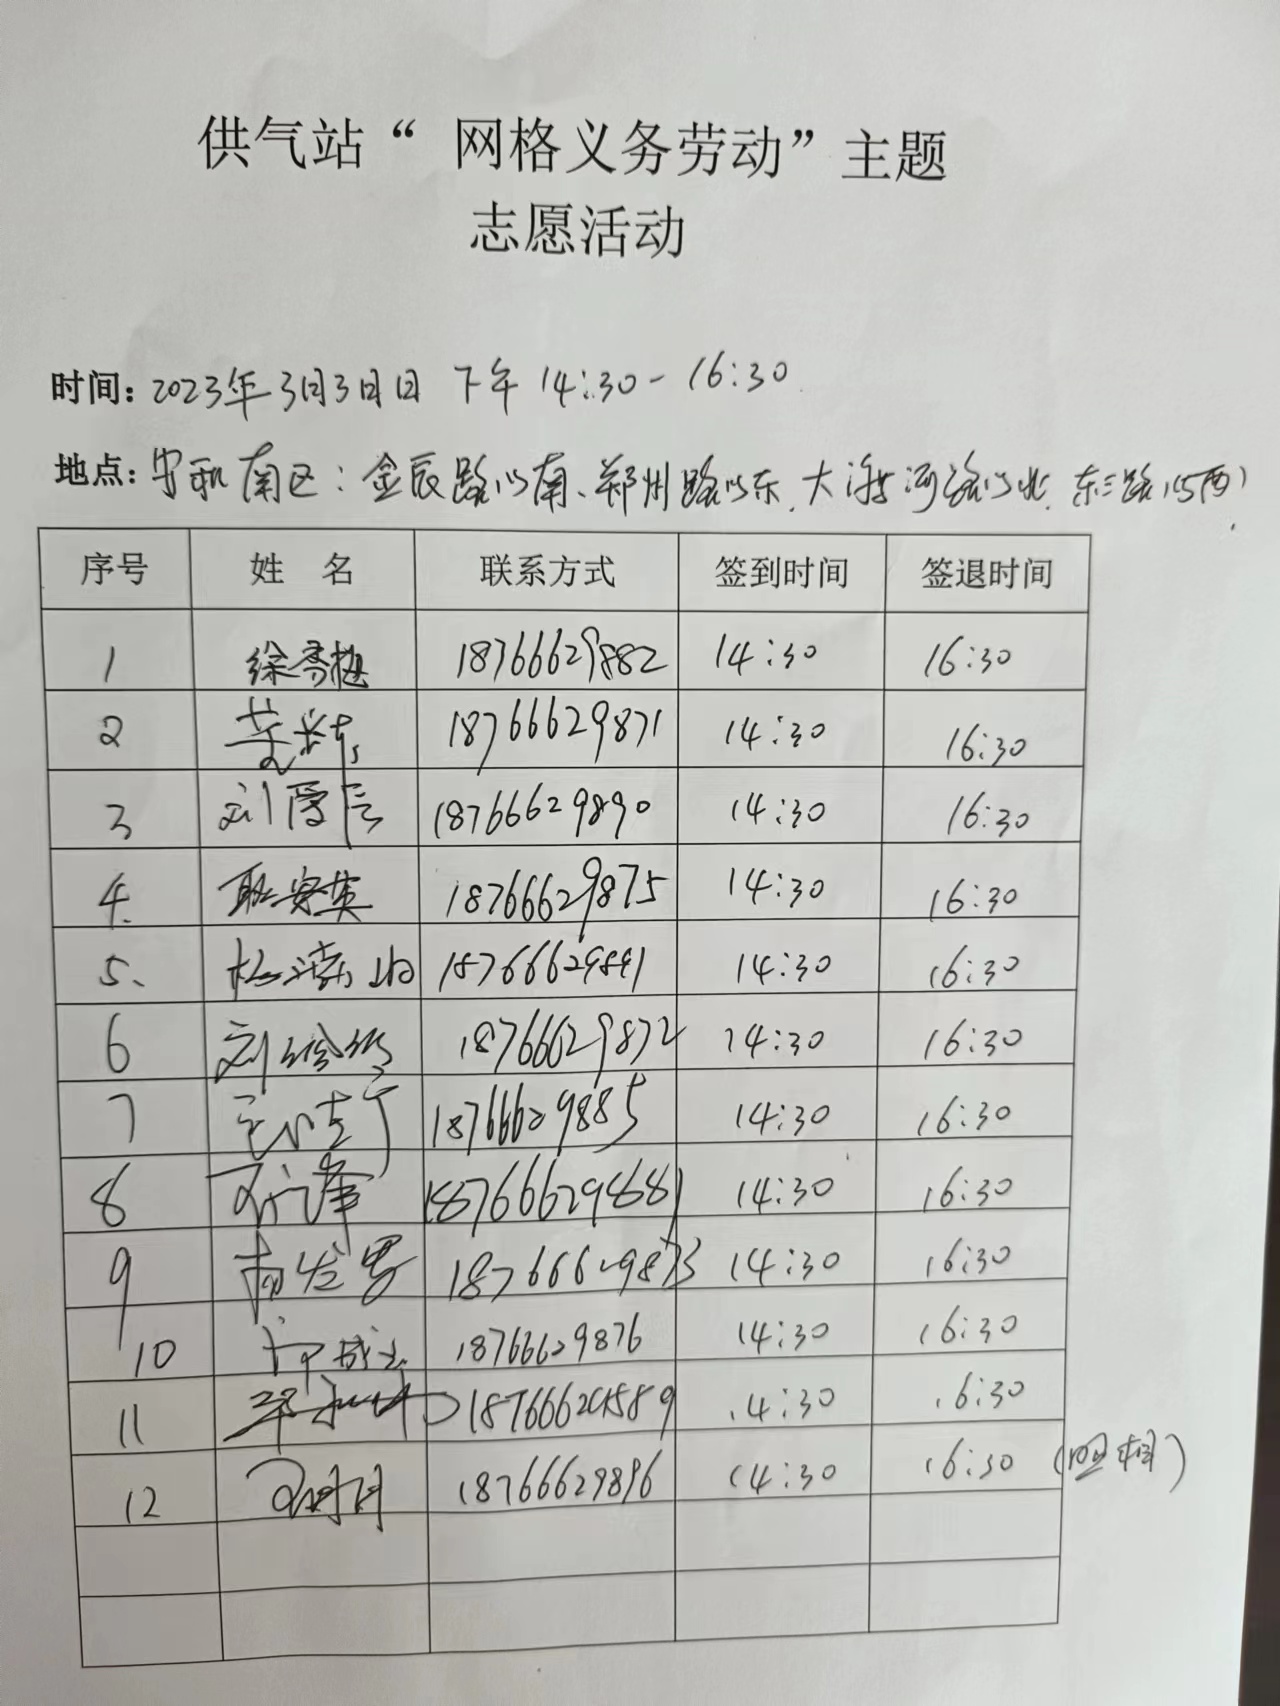 供气站“ 网格义务劳动”主题
志愿活动
时间: 2023年3月3日日 下午 14:30- 16:30
地点: 安和南区: 金辰路以南、郑州路以东、大渡河路以北、东三路以西
序号 姓 名 联系方式 签到时间 签退时间
1 徐秀梅 18766629882 14:30 16:30
2 18766629871 14:30 16:30
3 刘 18766629890 14:30 16:30
4. 耿安英 18766629875 14:30 16:30
5、 18766629891 14:30 16:30
6 刘 18766629872 14:30 16:30
7 18766629885 14:30 16:30
8 18766629881 14:30 16:30
9 18766629873 14:30 16:30
10 18766629876 14:30 16:30
11 14:30 16:30
12 18766629896 14:30 16:30 (照相)